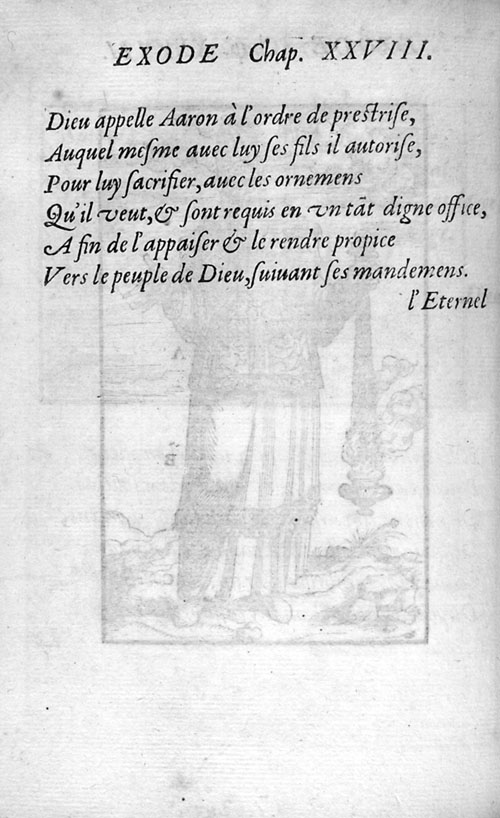 EXODE Chap. XXVIII.
Dieu appelle Aaron à l'ordre de prestrise,
Auquel mesme auec luy ses fils il autorise,
Pour luy sacrifier, auec les ornemens
Qu'il veut, & sont requis en vn tãt digne office,
A fin de l'appaiser & le rendre propice
Vers le peuple de Dieu, suiuant ses mandemens.
l'Eternel